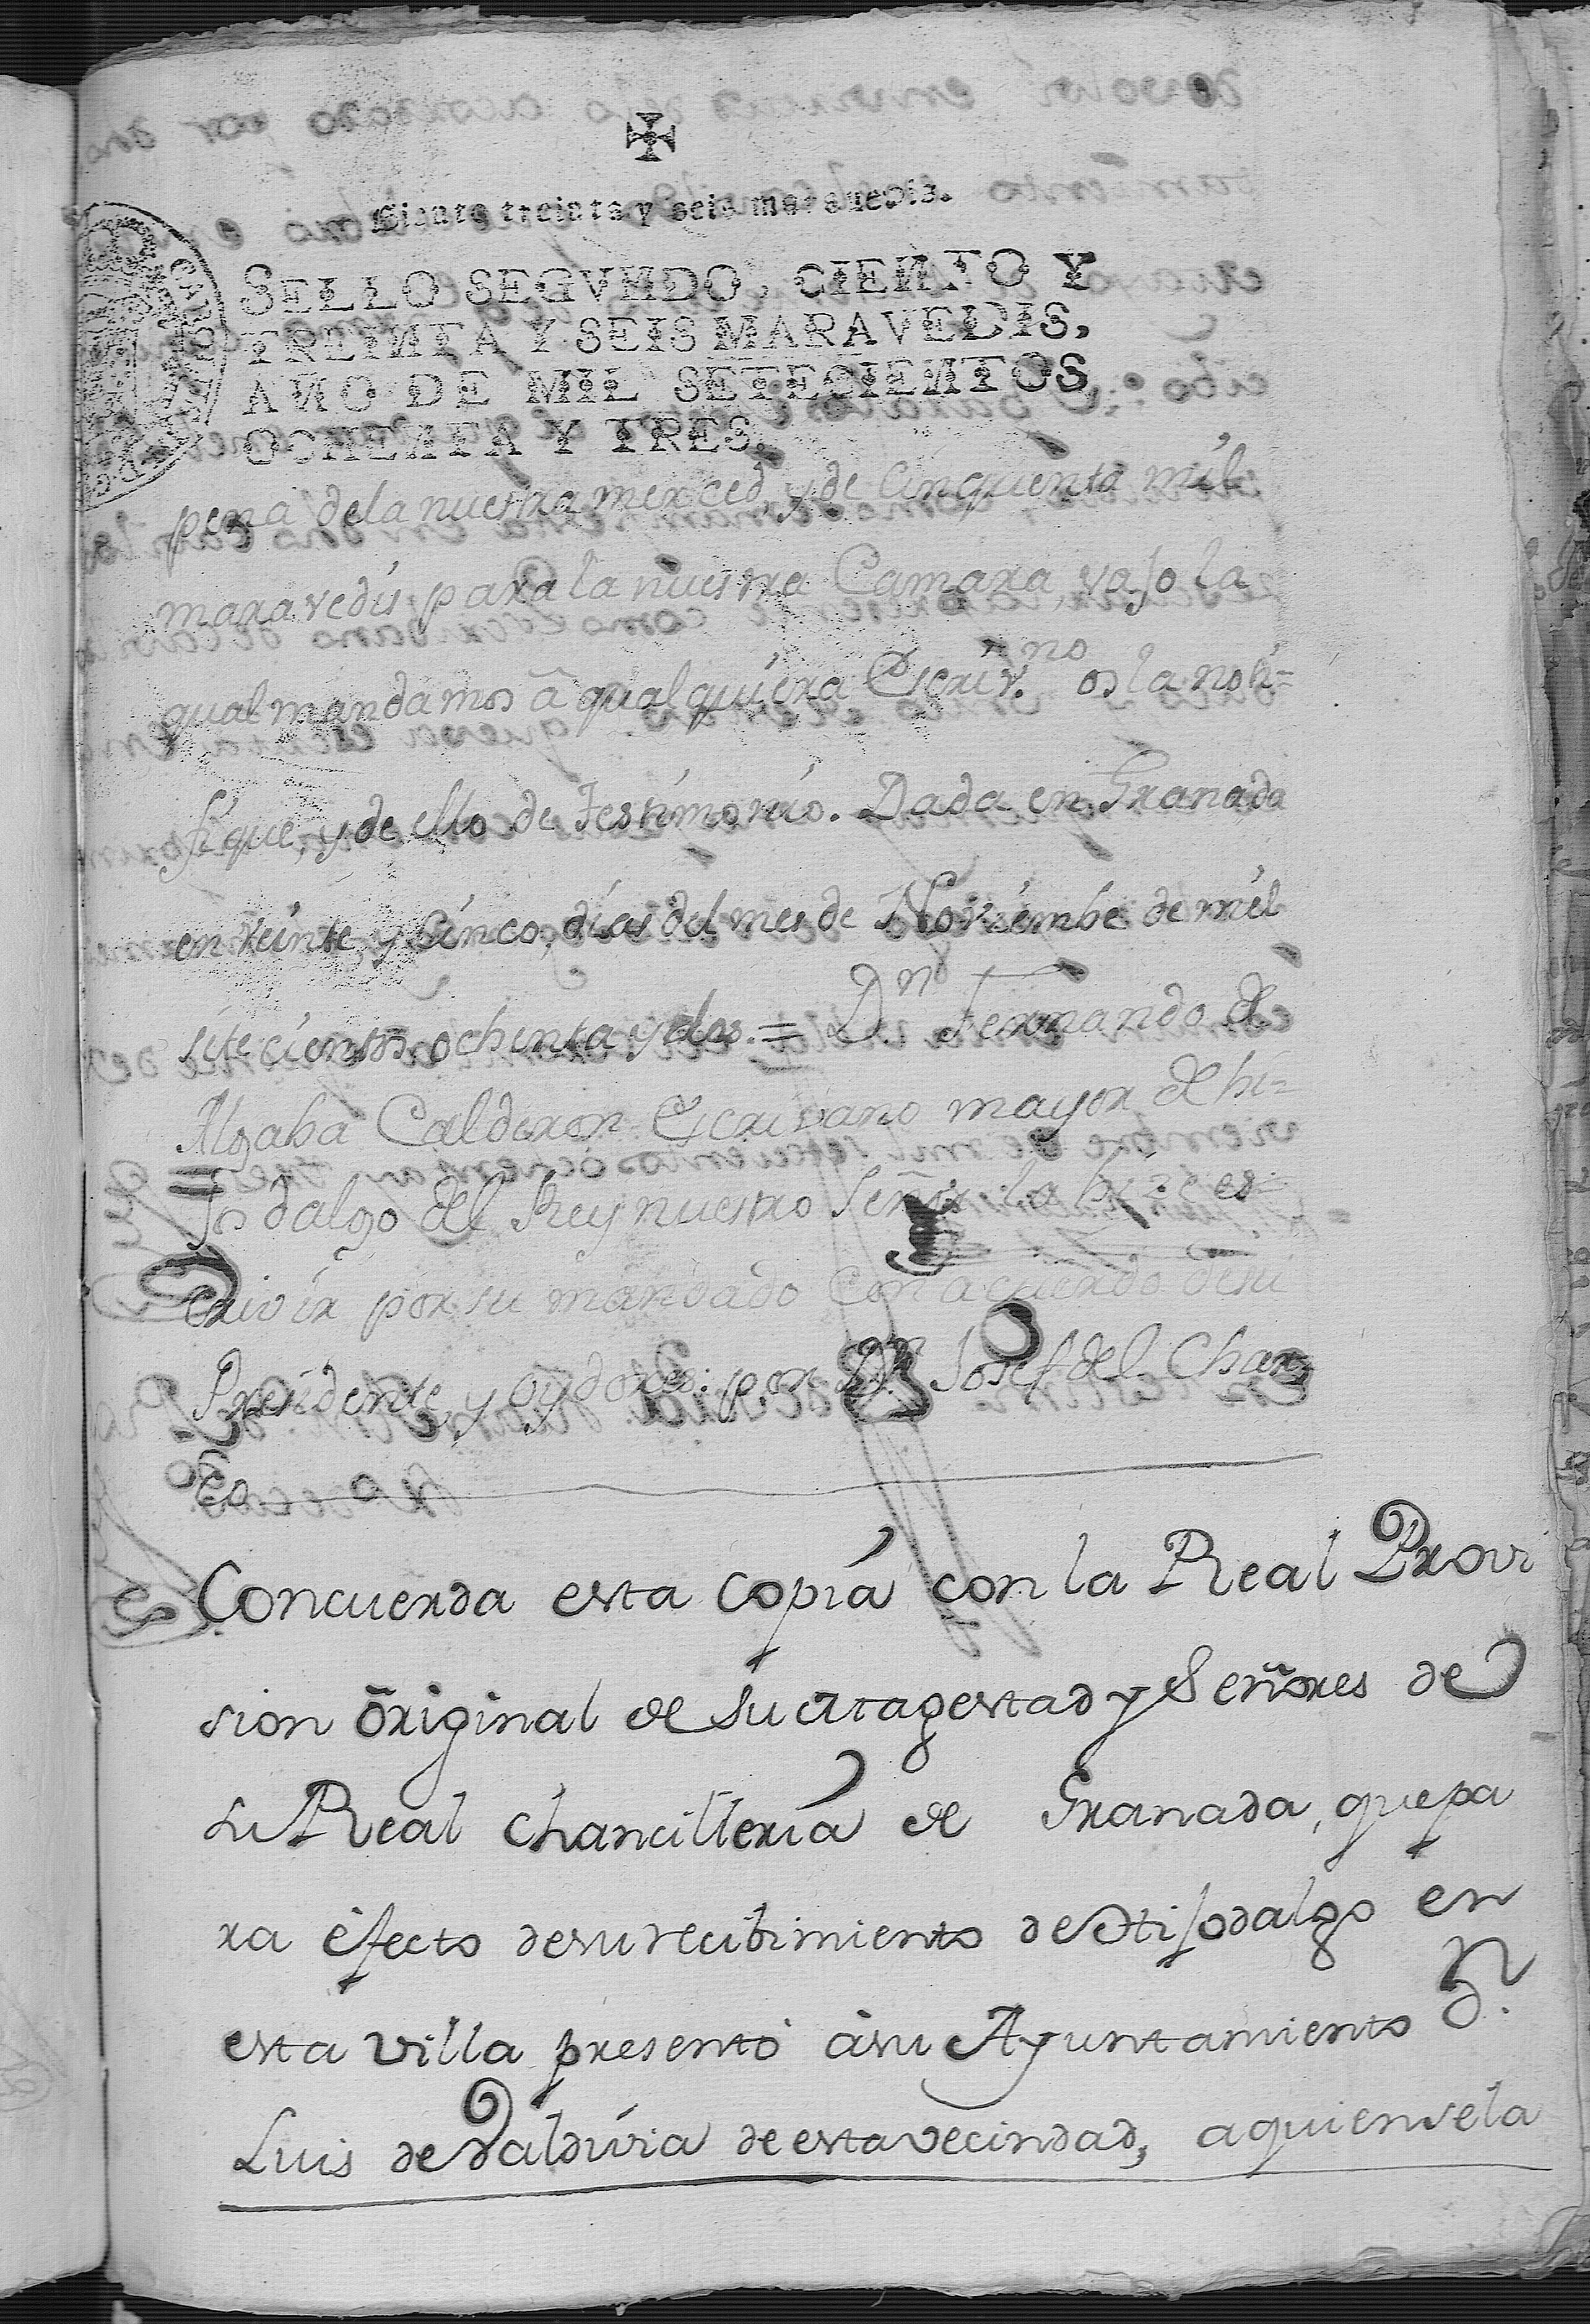 Ciento treinta y seis maravedis.
SELLO SEGVNDO, CIENTO Y
TREINTA Y SEIS MARAVEDIS,
AÑO DE MIL SETECIENTOS
OCHENTA Y TRES.
pena dela nuestra merced, y de Cinquenta mil
maravedis para la nuestra Camara, vajo la
qual mandamos â qualquiera Escriv.no os la noti=
fique, y de ello de Testimonio. Dada en Granada
en veinte y Cinco, dias del mes de Noviembe de mil
sete cientos ochenta y dos. = Dn Fernando de
Algaba Calderon Escrivano mayor de hi=
Jo dalgo del Rey nuestro Señor la hize es=
crivir por su mandado Con acuerdo desu
Presidente, y oydores: por Dn Josef del Char
co
Concuerda esta Copia con la Real Provi
sion original de Su Magestad y Señores de
su Real Chancilleria de Granada, que pa
ra efecto desu recibimiento de Hijodalgo en
esta Villa presentó ásu Ayuntamiento Dn.
Luis de Valdivia de esta vecindad, aquien se la